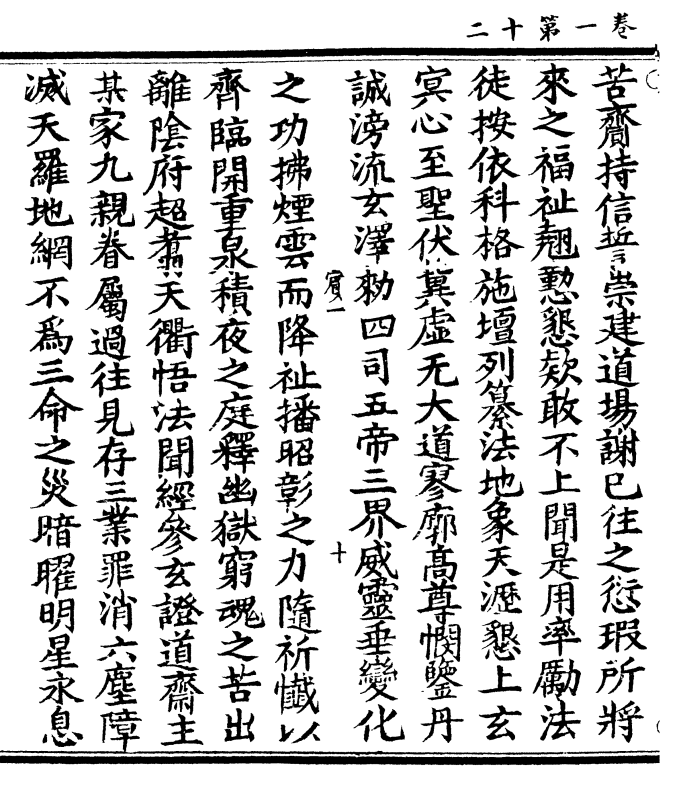 卷一第十二
苦齋持信誓崇建道場謝已往之愆瑕所將
來之福祉翹懃懇欵敢不上聞是用率勵法
徒按依科格施壇列纂法地象天瀝懇上玄
冥心至聖伏冀虛无大道寥廓高尊憫鑒丹
誠滂流玄澤勑四司五帝三界威靈垂變化
賓一
十
之功拂煙雲而降祉播昭彰之力隨祈懺以
齊臨開重泉積夜之庭釋幽獄窮魂之苦出
離陰府超翥天衢悟法聞經參玄證道齋主
某家九親眷屬過往見存三業罪消六塵障
滅天羅地網不爲三命之災暗曜明星永息